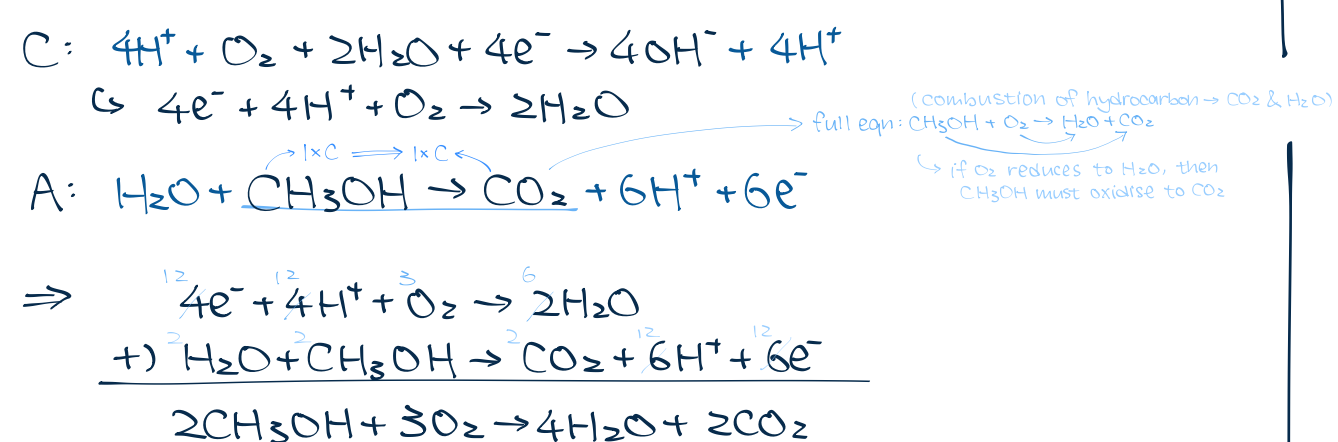 C: 4H⁺ + O₂ + 2H₂O + 4e⁻ → 4OH⁻ + 4H⁺
↪ 4e⁻ + 4H⁺ + O₂ → 2H₂O
(combustion of hydrocarbon → CO₂ & H₂O)
→ full eqn: CH₃OH + O₂ → H₂O + CO₂
↪ if O₂ reduces to H₂O, then
CH₃OH must oxidise to CO₂
1×C ⟹ 1×C
A: H₂O + CH₃OH → CO₂ + 6H⁺ + 6e⁻
12 12 3 6
⇒ 4e⁻ + 4H⁺ + O₂ → 2H₂O
2 2 2 12 12
+) H₂O + CH₃OH → CO₂ + 6H⁺ + 6e⁻
2CH₃OH + 3O₂ → 4H₂O + 2CO₂